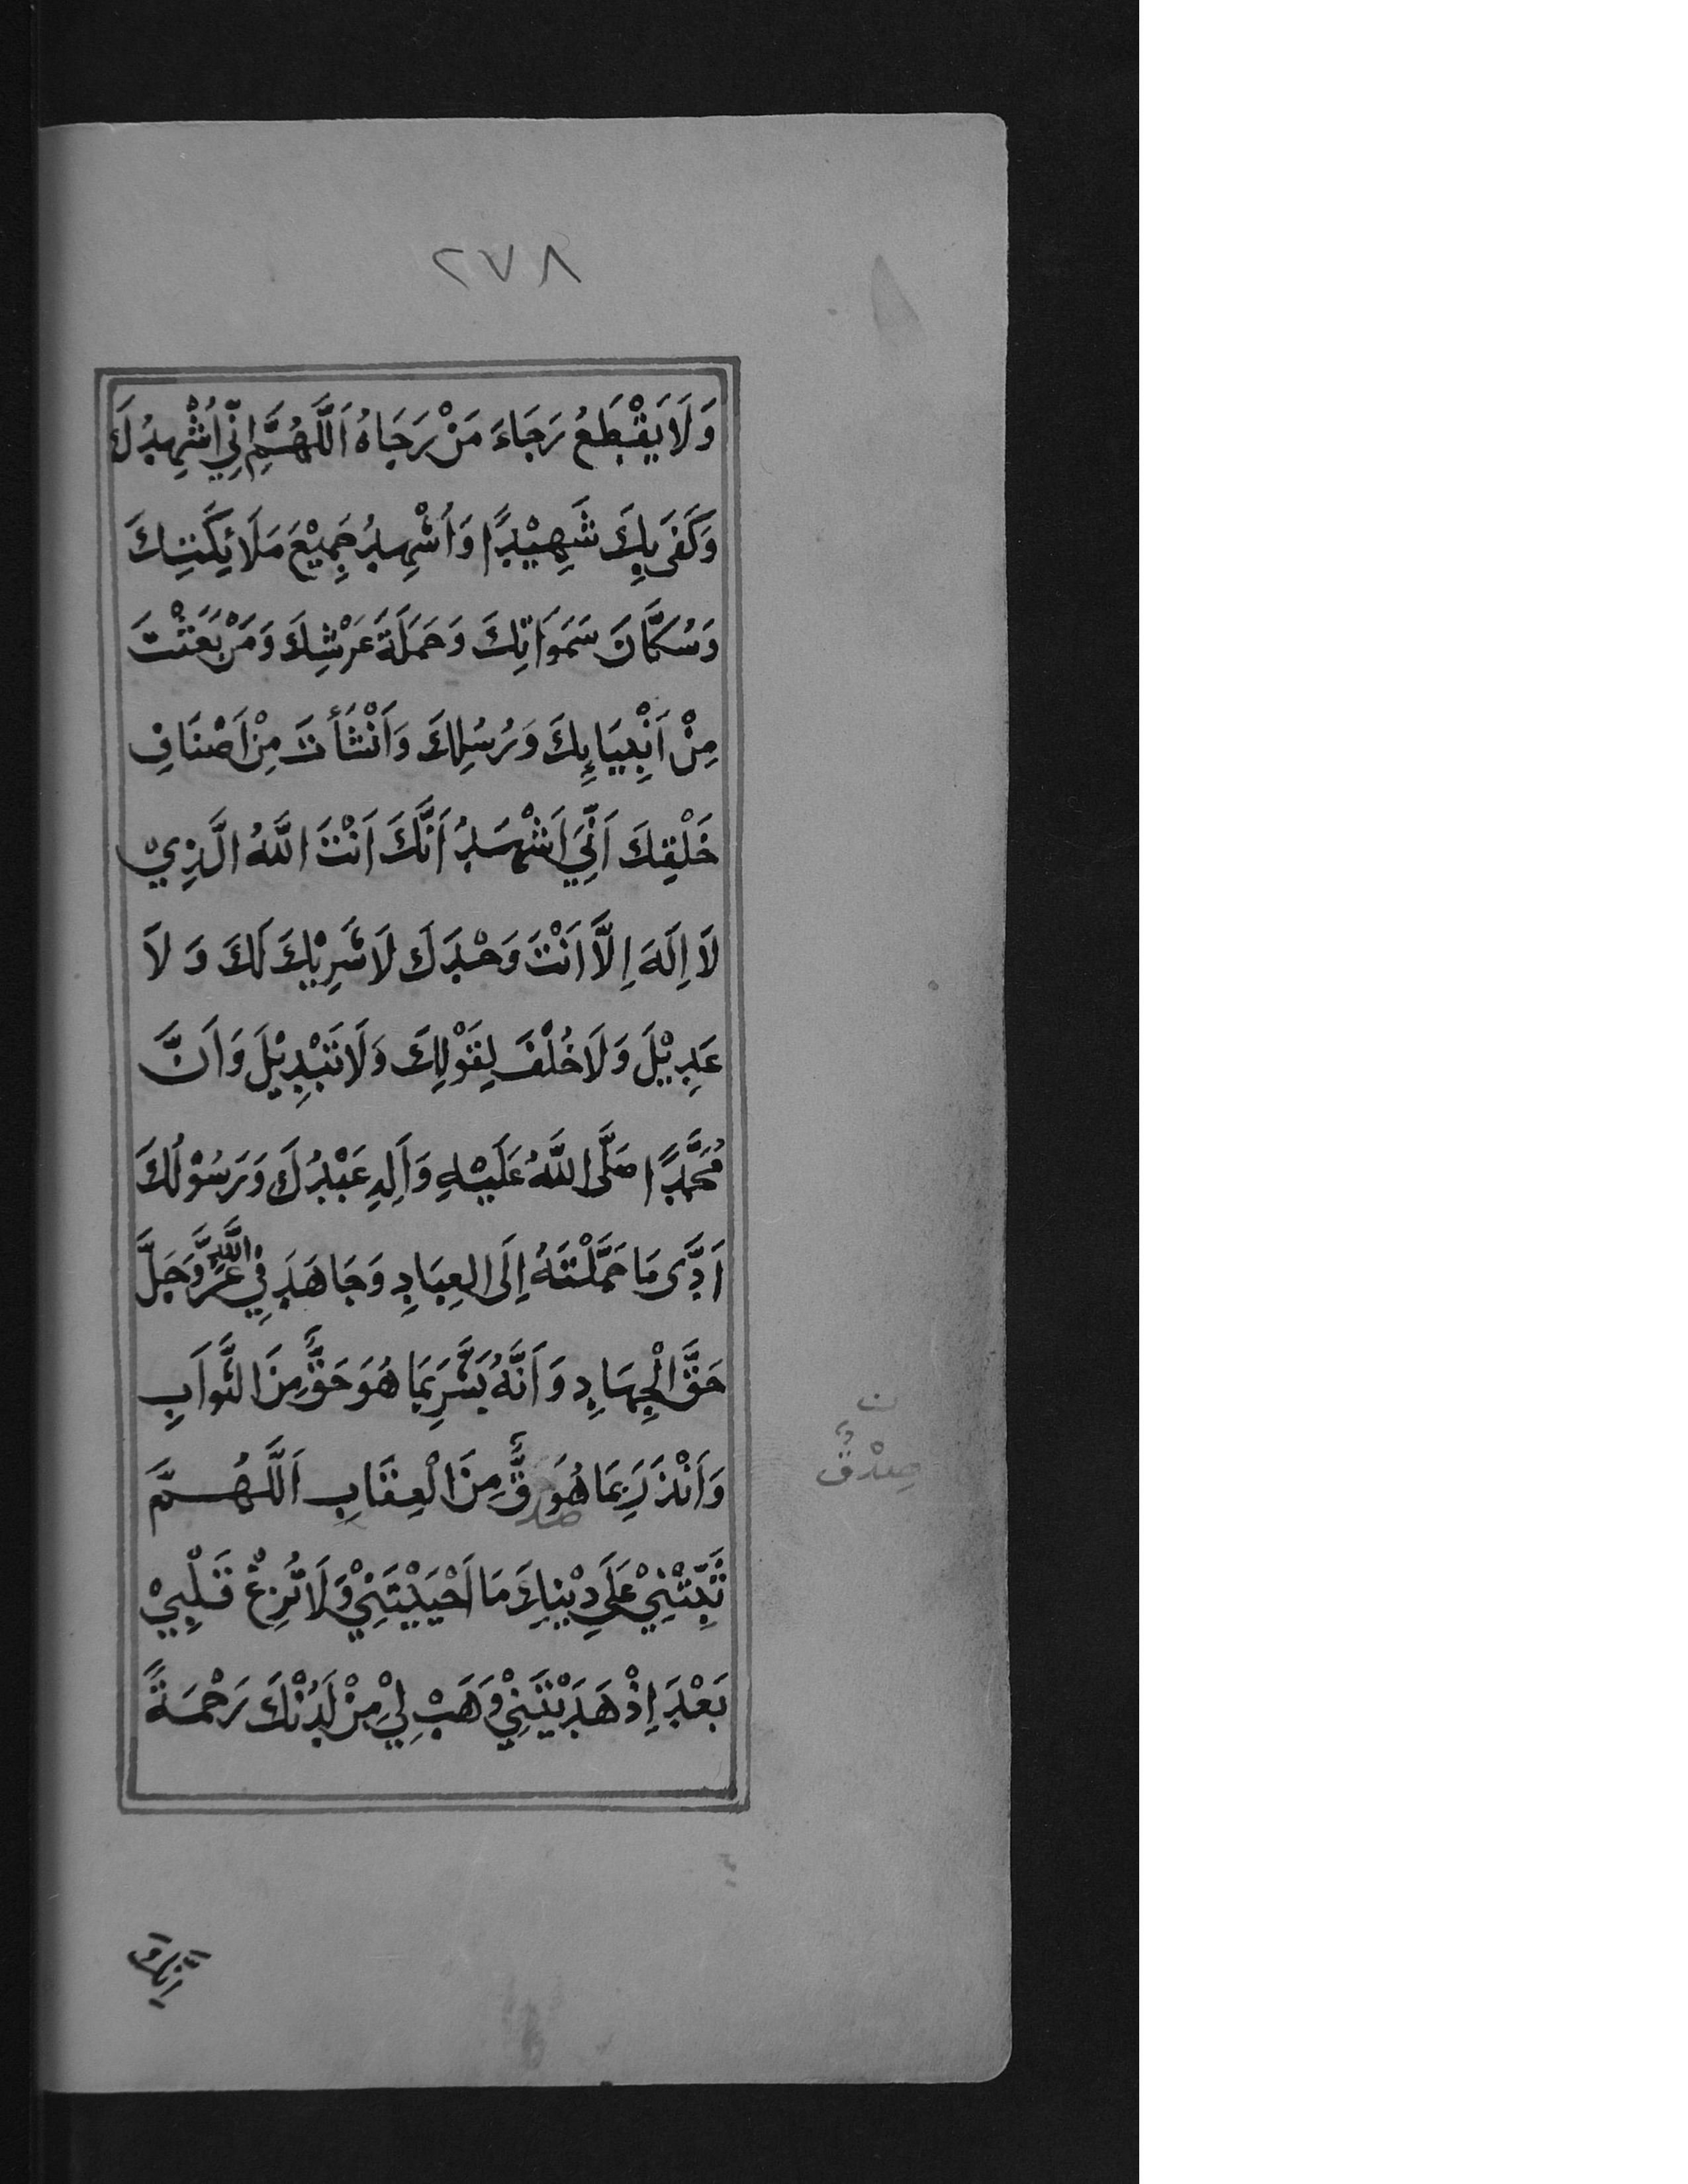 ٢٧٨
وَلَا يَقْطَعُ رَجَاءَ مَنْ رَجَاهُ اَللَّهُمَّ اِنِّي اُشْهِدُكَ
وَكَفَى بِكَ شَهِيْدًا وَاُشْهِدُ جَمِيْعَ مَلَائِكَتِكَ
وَسُكَّانَ سَمَوَاتِكَ وَحَمَلَةَ عَرْشِكَ وَمَنْ بَعَثْتَ
مِنْ اَنْبِيَائِكَ وَرُسُلِكَ وَاَنْشَأْتَ مِنْ اَصْنَافِ
خَلْقِكَ اَنِّيَ اَشْهَدُ اَنَّكَ اَنْتَ اللَّهُ الَّذِيْ
لَا اِلَهَ اِلَّا اَنْتَ وَحْدَكَ لَا شَرِيْكَ لَكَ وَلَا
عَدِيْلَ وَلَا خُلْفَ لِقَوْلِكَ وَلَا تَبْدِيْلَ وَاَنَّ
مُحَمَّدًا صَلَّى اللَّهُ عَلَيْهِ وَاَلِهِ عَبْدُكَ وَرَسُوْلُكَ
اَدَّى مَا حَمَّلْتَهُ اِلَى العِبَادِ وَجَاهَدَ فِيْ اللَّهِ عَزَّ وَجَلَّ
حَقَّ الْجِهَادِ وَاَنَّهُ بَشَّرَ بِمَا هُوَ حَقٌّ مِنَ الثَّوَابِ
وَاَنْذَرَ بِمَا هُوَ قٌّ مِنَ الْعِقَابِ اَللَّهُمَّ
ن
صِدْقٌ
ثَبِّتْنِيْ عَلَى دِيْنِكَ مَا اَحْيَيْتَنِيْ وَلَا تُزِغْ قَلْبِيْ
بَعْدَ اِذْ هَدَيْتَنِيْ وَهَبْ لِيْ مِنْ لَدُنْكَ رَحْمَةً